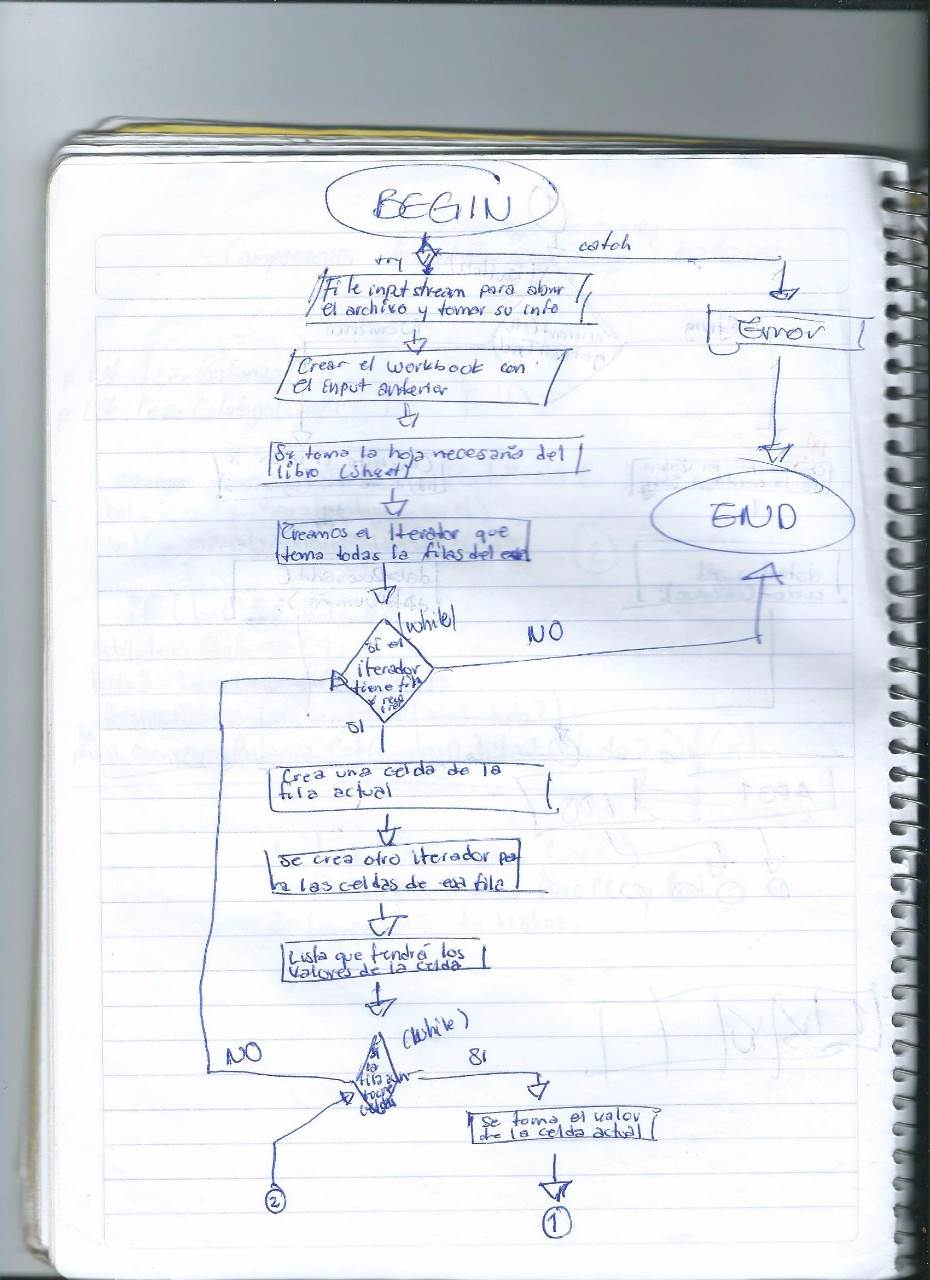 BEGIN
try
catch
File input stream para abrir
el archivo y tomar su info
Error
Crear el workbook con
el Input anterior
Se toma la hoja necesaria del
libro (sheet)
END
Creamos el Iterator que
toma todas la filas del
(While)
NO
Si el
iterador
tiene fila
SI
Crea una celda de la
fila actual
Se crea otro iterador pa
ra las celdas de esa fila
Lista que tendrá los
valores de la celda
(While)
NO
SI
Si
la
fila aun
tiene
celdas
Se toma el valor
de la celda actual
2
1